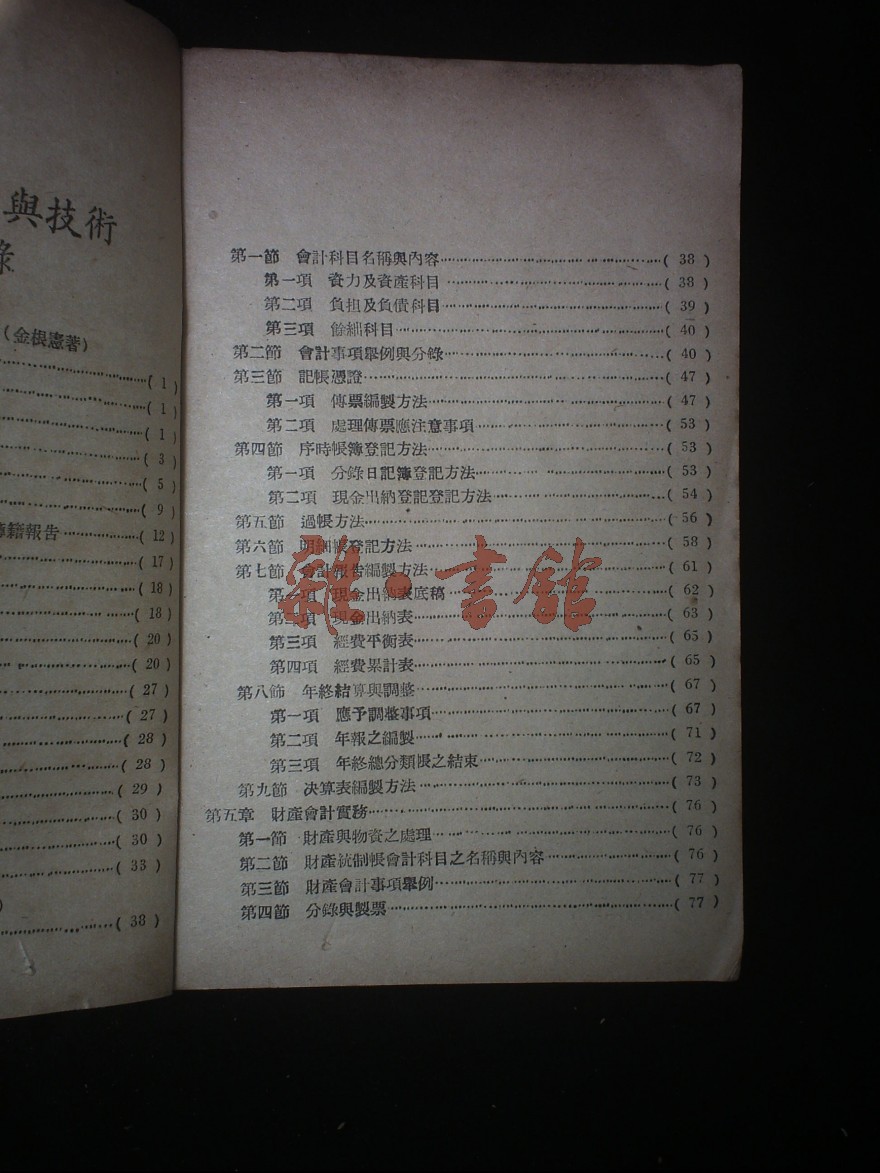 與技術
錄
(金根憲著)
( 1 )
( 1 )
( 1 )
( 3 )
( 5 )
( 9 )
簿籍報告 ( 12 )
( 17 )
( 18 )
( 18 )
( 20 )
( 20 )
( 27 )
( 27 )
( 28 )
( 28 )
( 29 )
( 30 )
( 30 )
( 33 )
)
( 38 )
第一節 會計科目名稱與內容 ( 38 )
第一項 資力及資產科目 ( 38 )
第二項 負担及負債科目 ( 39 )
第三項 餘絀科目 ( 40 )
第二節 會計事項舉例與分錄 ( 40 )
第三節 記帳憑證 ( 47 )
第一項 傳票編製方法 ( 47 )
第二項 處理傳票應注意事項 ( 53 )
第四節 序時帳簿登記方法 ( 53 )
第一項 分錄日記簿登記方法 ( 53 )
第二項 現金出納登記登記方法 ( 54 )
第五節 過帳方法 ( 56 )
第六節 明細帳登記方法 ( 58 )
第七節 會計報告編製方法 ( 61 )
第一項 現金出納表底稿 ( 62 )
第二項 現金出納表 ( 63 )
第三項 經費平衡表 ( 65 )
第四項 經費累計表 ( 65 )
第八節 年終結算與調整 ( 67 )
第一項 應予調整事項 ( 67 )
第二項 年報之編製 ( 71 )
第三項 年終總分類帳之結束 ( 72 )
第九節 決算表編製方法 ( 73 )
第五章 財產會計實務 ( 76 )
第一節 財產與物資之處理 ( 76 )
第二節 財產統制帳會計科目之名稱與內容 ( 76 )
第三節 財產會計事項舉例 ( 77 )
第四節 分錄與製票 ( 77 )
雜·書館